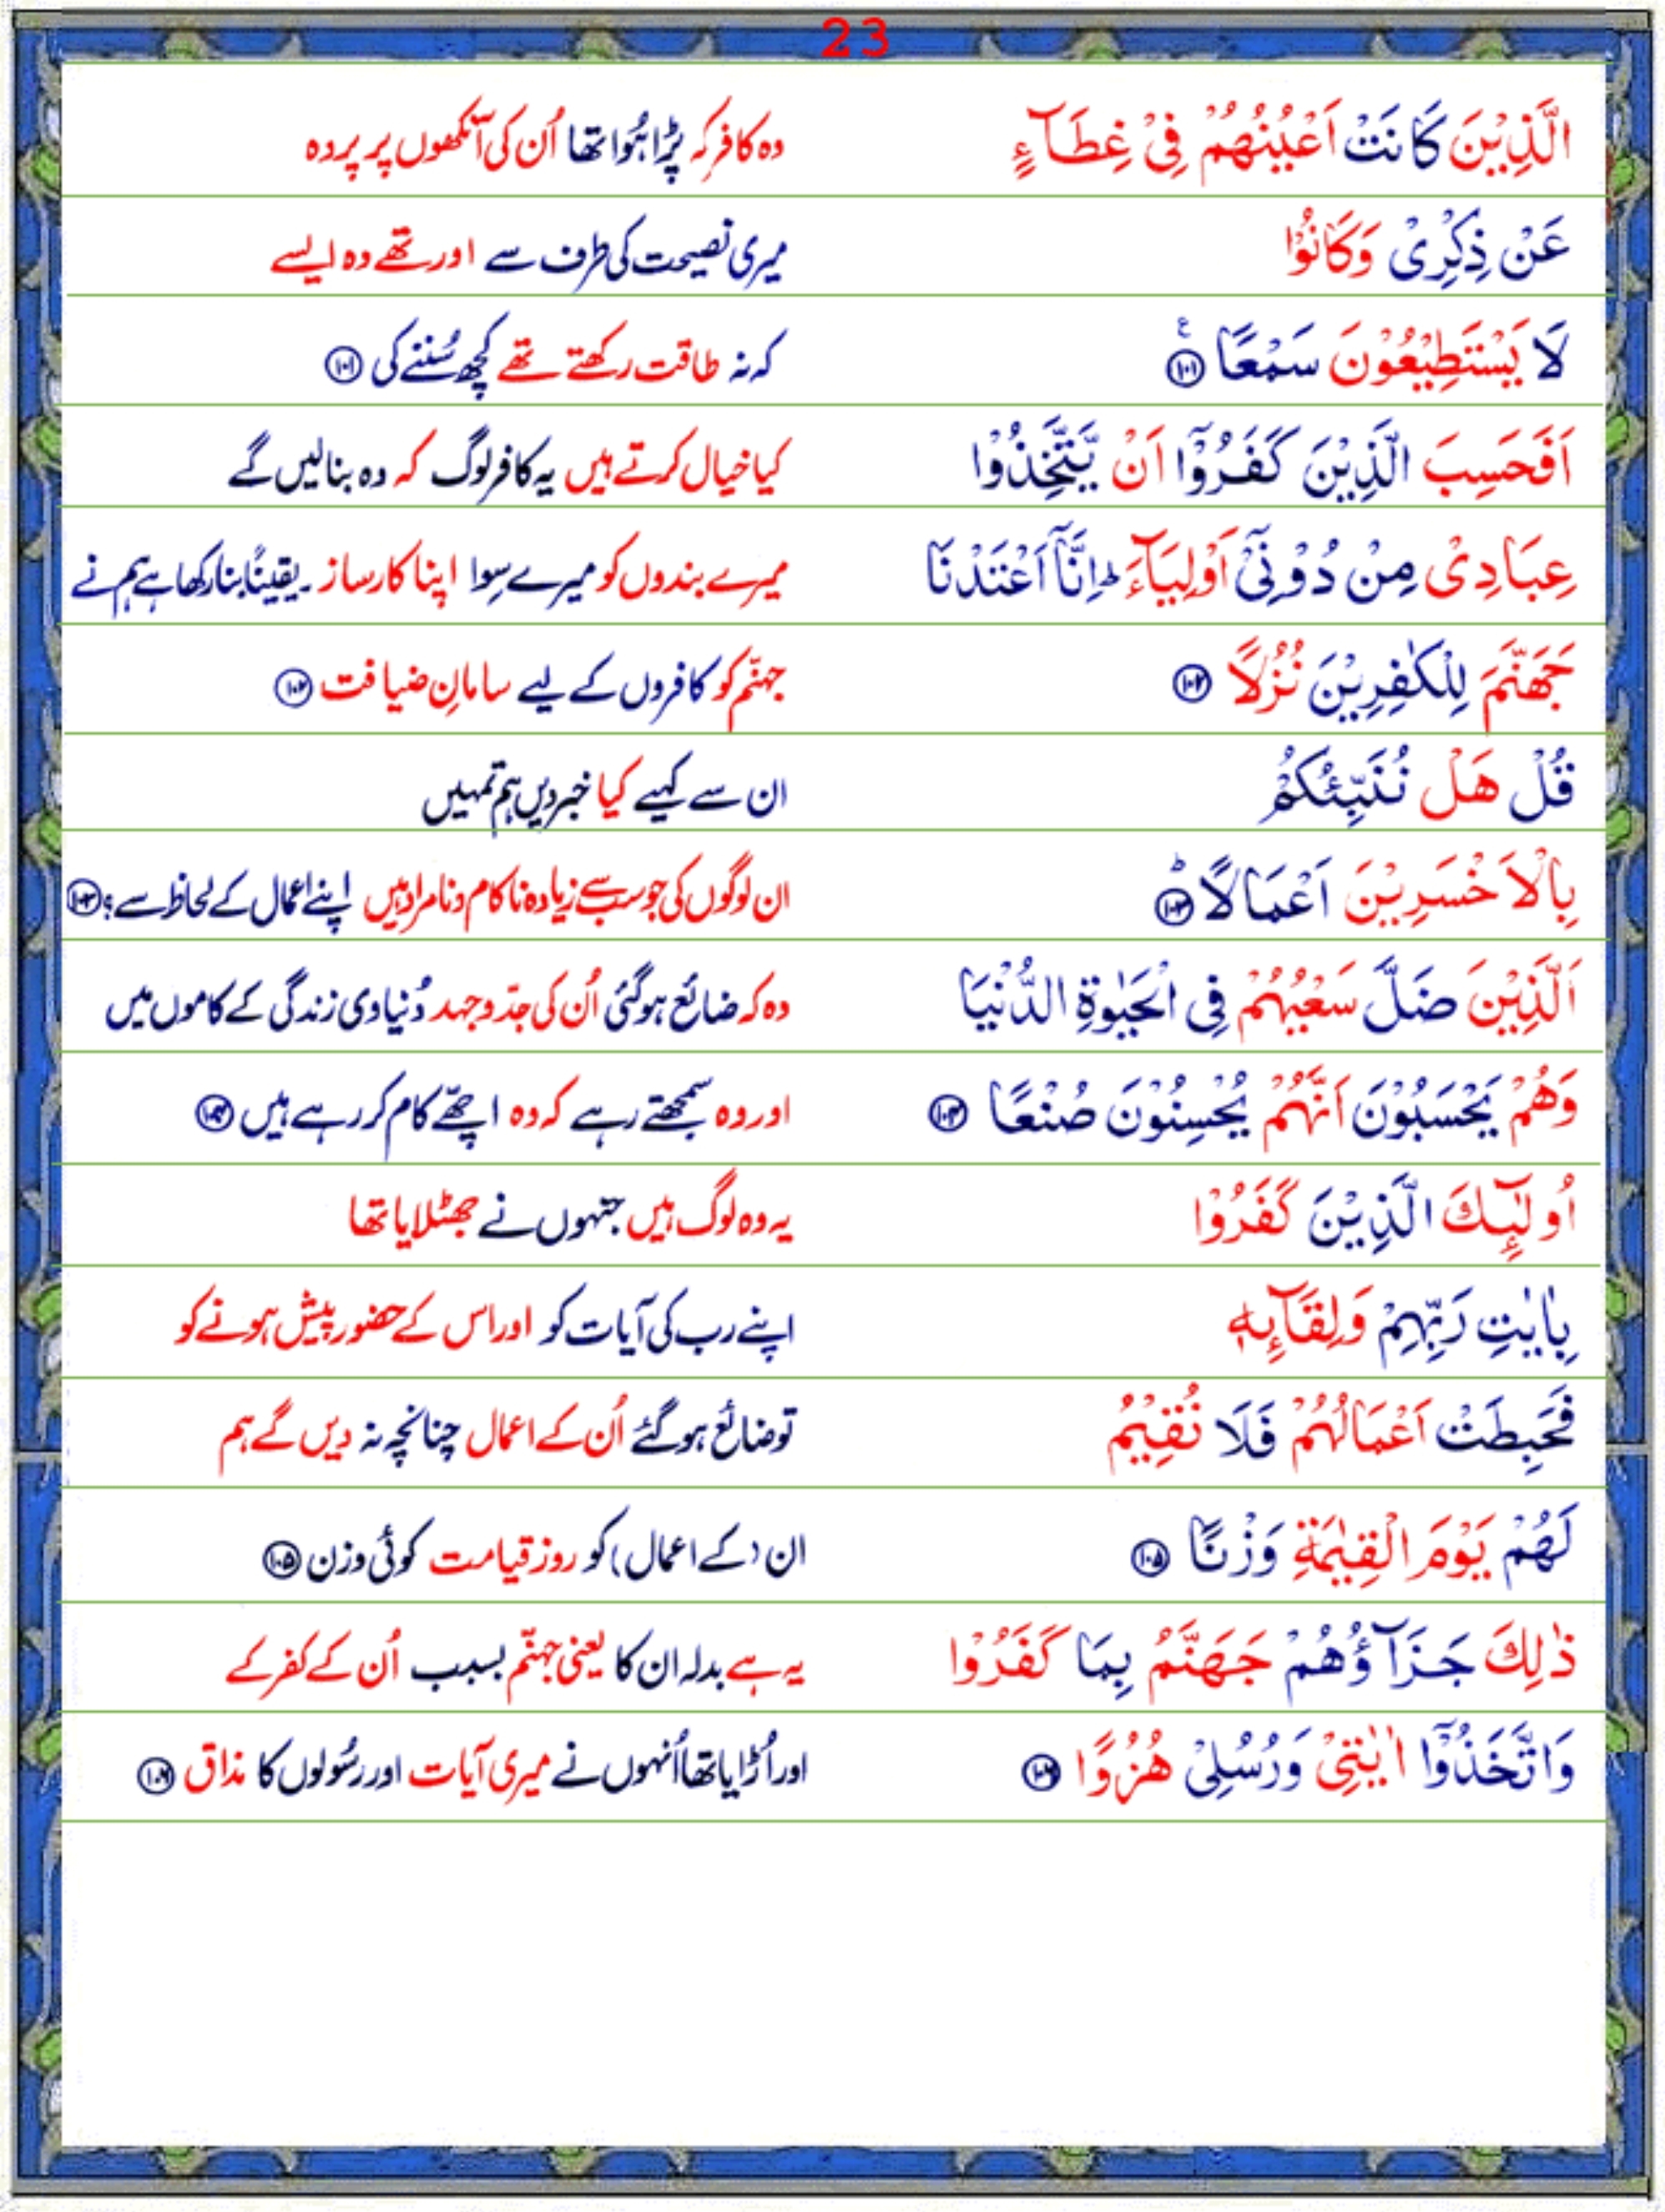 23
الَّذِيْنَ كَانَتْ اَعْيُنُهُمْ فِيْ غِطَآءٍ وہ کافر کہ پڑا ہُوا تھا اُن کی آنکھوں پر پردہ
عَنْ ذِكْرِيْ وَكَانُوْا میری نصیحت کی طرف سے اور تھے وہ ایسے
لَا يَسْتَطِيْعُوْنَ سَمْعًا ۧ ۝۱۰۱ کہ نہ طاقت رکھتے تھے کچھ سُننے کی ۝۱۰۱
اَفَحَسِبَ الَّذِيْنَ كَفَرُوْٓا اَنْ يَّتَّخِذُوْا کیا خیال کرتے ہیں یہ کافر لوگ کہ وہ بنالیں گے
عِبَادِيْ مِنْ دُوْنِيْٓ اَوْلِيَآءَ ؕ اِنَّآ اَعْتَدْنَا میرے بندوں کو میرے سِوا اپنا کارساز ۔ یقینًا بنا رکھا ہے ہم نے
جَهَنَّمَ لِلْكٰفِرِيْنَ نُزُلًا ۝۱۰۲ جہنّم کو کافروں کے لیے سامانِ ضیافت ۝۱۰۲
قُلْ هَلْ نُنَبِّئُكُمْ ان سے کہیے کیا خبر دیں ہم تمہیں
بِالْاَخْسَرِيْنَ اَعْمَالًا ؕ ۝۱۰۳ ان لوگوں کی جو سب سے زیادہ ناکام و نامراد ہیں اپنے اعمال کے لحاظ سے ؟ ۝۱۰۳
اَلَّذِيْنَ ضَلَّ سَعْيُهُمْ فِي الْحَيٰوةِ الدُّنْيَا وہ کہ ضائع ہوگئی اُن کی جدّ وجہد دُنیاوی زندگی کے کاموں میں
وَهُمْ يَحْسَبُوْنَ اَنَّهُمْ يُحْسِنُوْنَ صُنْعًا ۝۱۰۴ اور وہ سمجھتے رہے کہ وہ اچھّے کام کر رہے ہیں ۝۱۰۴
اُولٰٓئِكَ الَّذِيْنَ كَفَرُوْا یہ وہ لوگ ہیں جنہوں نے جھٹلایا تھا
بِاٰيٰتِ رَبِّهِمْ وَلِقَآئِهٖ اپنے رب کی آیات کو اور اس کے حضور پیش ہونے کو
فَحَبِطَتْ اَعْمَالُهُمْ فَلَا نُقِيْمُ تو ضائع ہوگئے اُن کے اعمال چنانچہ نہ دیں گے ہم
لَهُمْ يَوْمَ الْقِيٰمَةِ وَزْنًا ۝۱۰۵ ان (کے اعمال) کو روز قیامت کوئی وزن ۝۱۰۵
ذٰلِكَ جَزَآؤُهُمْ جَهَنَّمُ بِمَا كَفَرُوْا یہ ہے بدلہ ان کا یعنی جہنّم بسبب اُن کے کفر کے
وَاتَّخَذُوْٓا اٰيٰتِيْ وَرُسُلِيْ هُزُوًا ۝۱۰۶ اور اُڑایا تھا اُنہوں نے میری آیات اور رسُولوں کا مذاق ۝۱۰۶